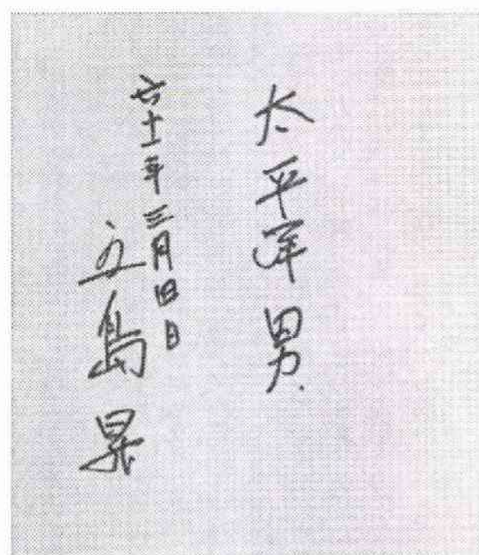 太平洋男
六十一年三月四日
五島昇